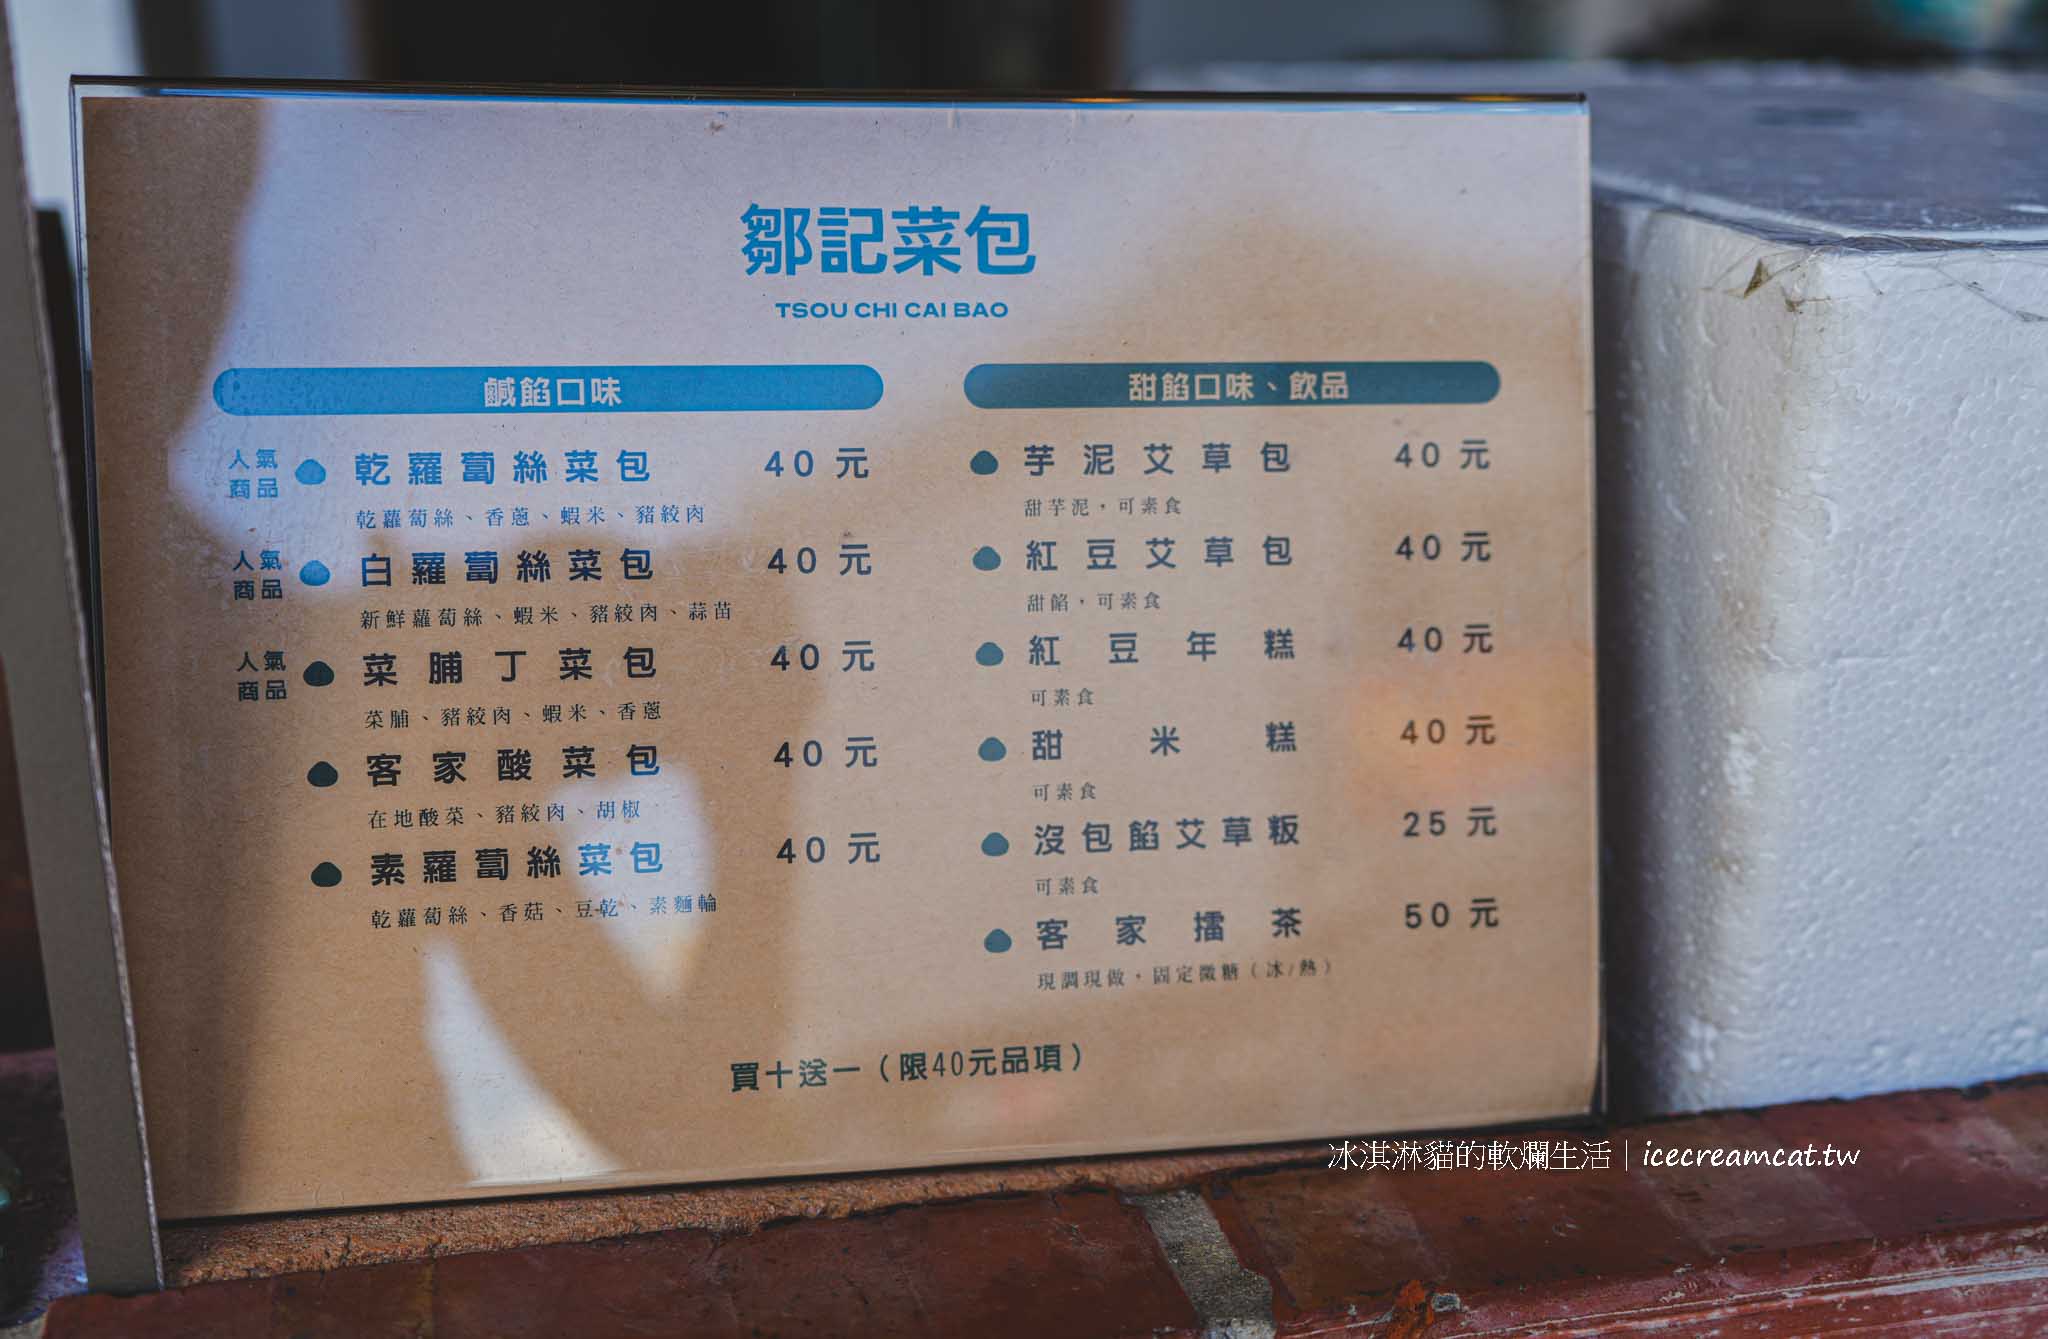 鄒記菜包
TSOU CHI CAI BAO
鹹餡口味
人氣商品 乾蘿蔔絲菜包 40 元
乾蘿蔔絲、香蔥、蝦米、豬絞肉
人氣商品 白蘿蔔絲菜包 40 元
新鮮蘿蔔絲、蝦米、豬絞肉、蒜苗
人氣商品 菜脯丁菜包 40 元
菜脯、豬絞肉、蝦米、香蔥
客家酸菜包 40 元
在地酸菜、豬絞肉、胡椒
素蘿蔔絲菜包 40 元
乾蘿蔔絲、香菇、豆乾、素麵輪
甜餡口味、飲品
芋泥艾草包 40 元
甜芋泥，可素食
紅豆艾草包 40 元
甜餡，可素食
紅豆年糕 40 元
可素食
甜米糕 40 元
可素食
沒包餡艾草粄 25 元
可素食
客家擂茶 50 元
現調現做，固定微糖（冰/熱）
買十送一（限40元品項）
冰淇淋貓的軟爛生活｜icecreamcat.tw